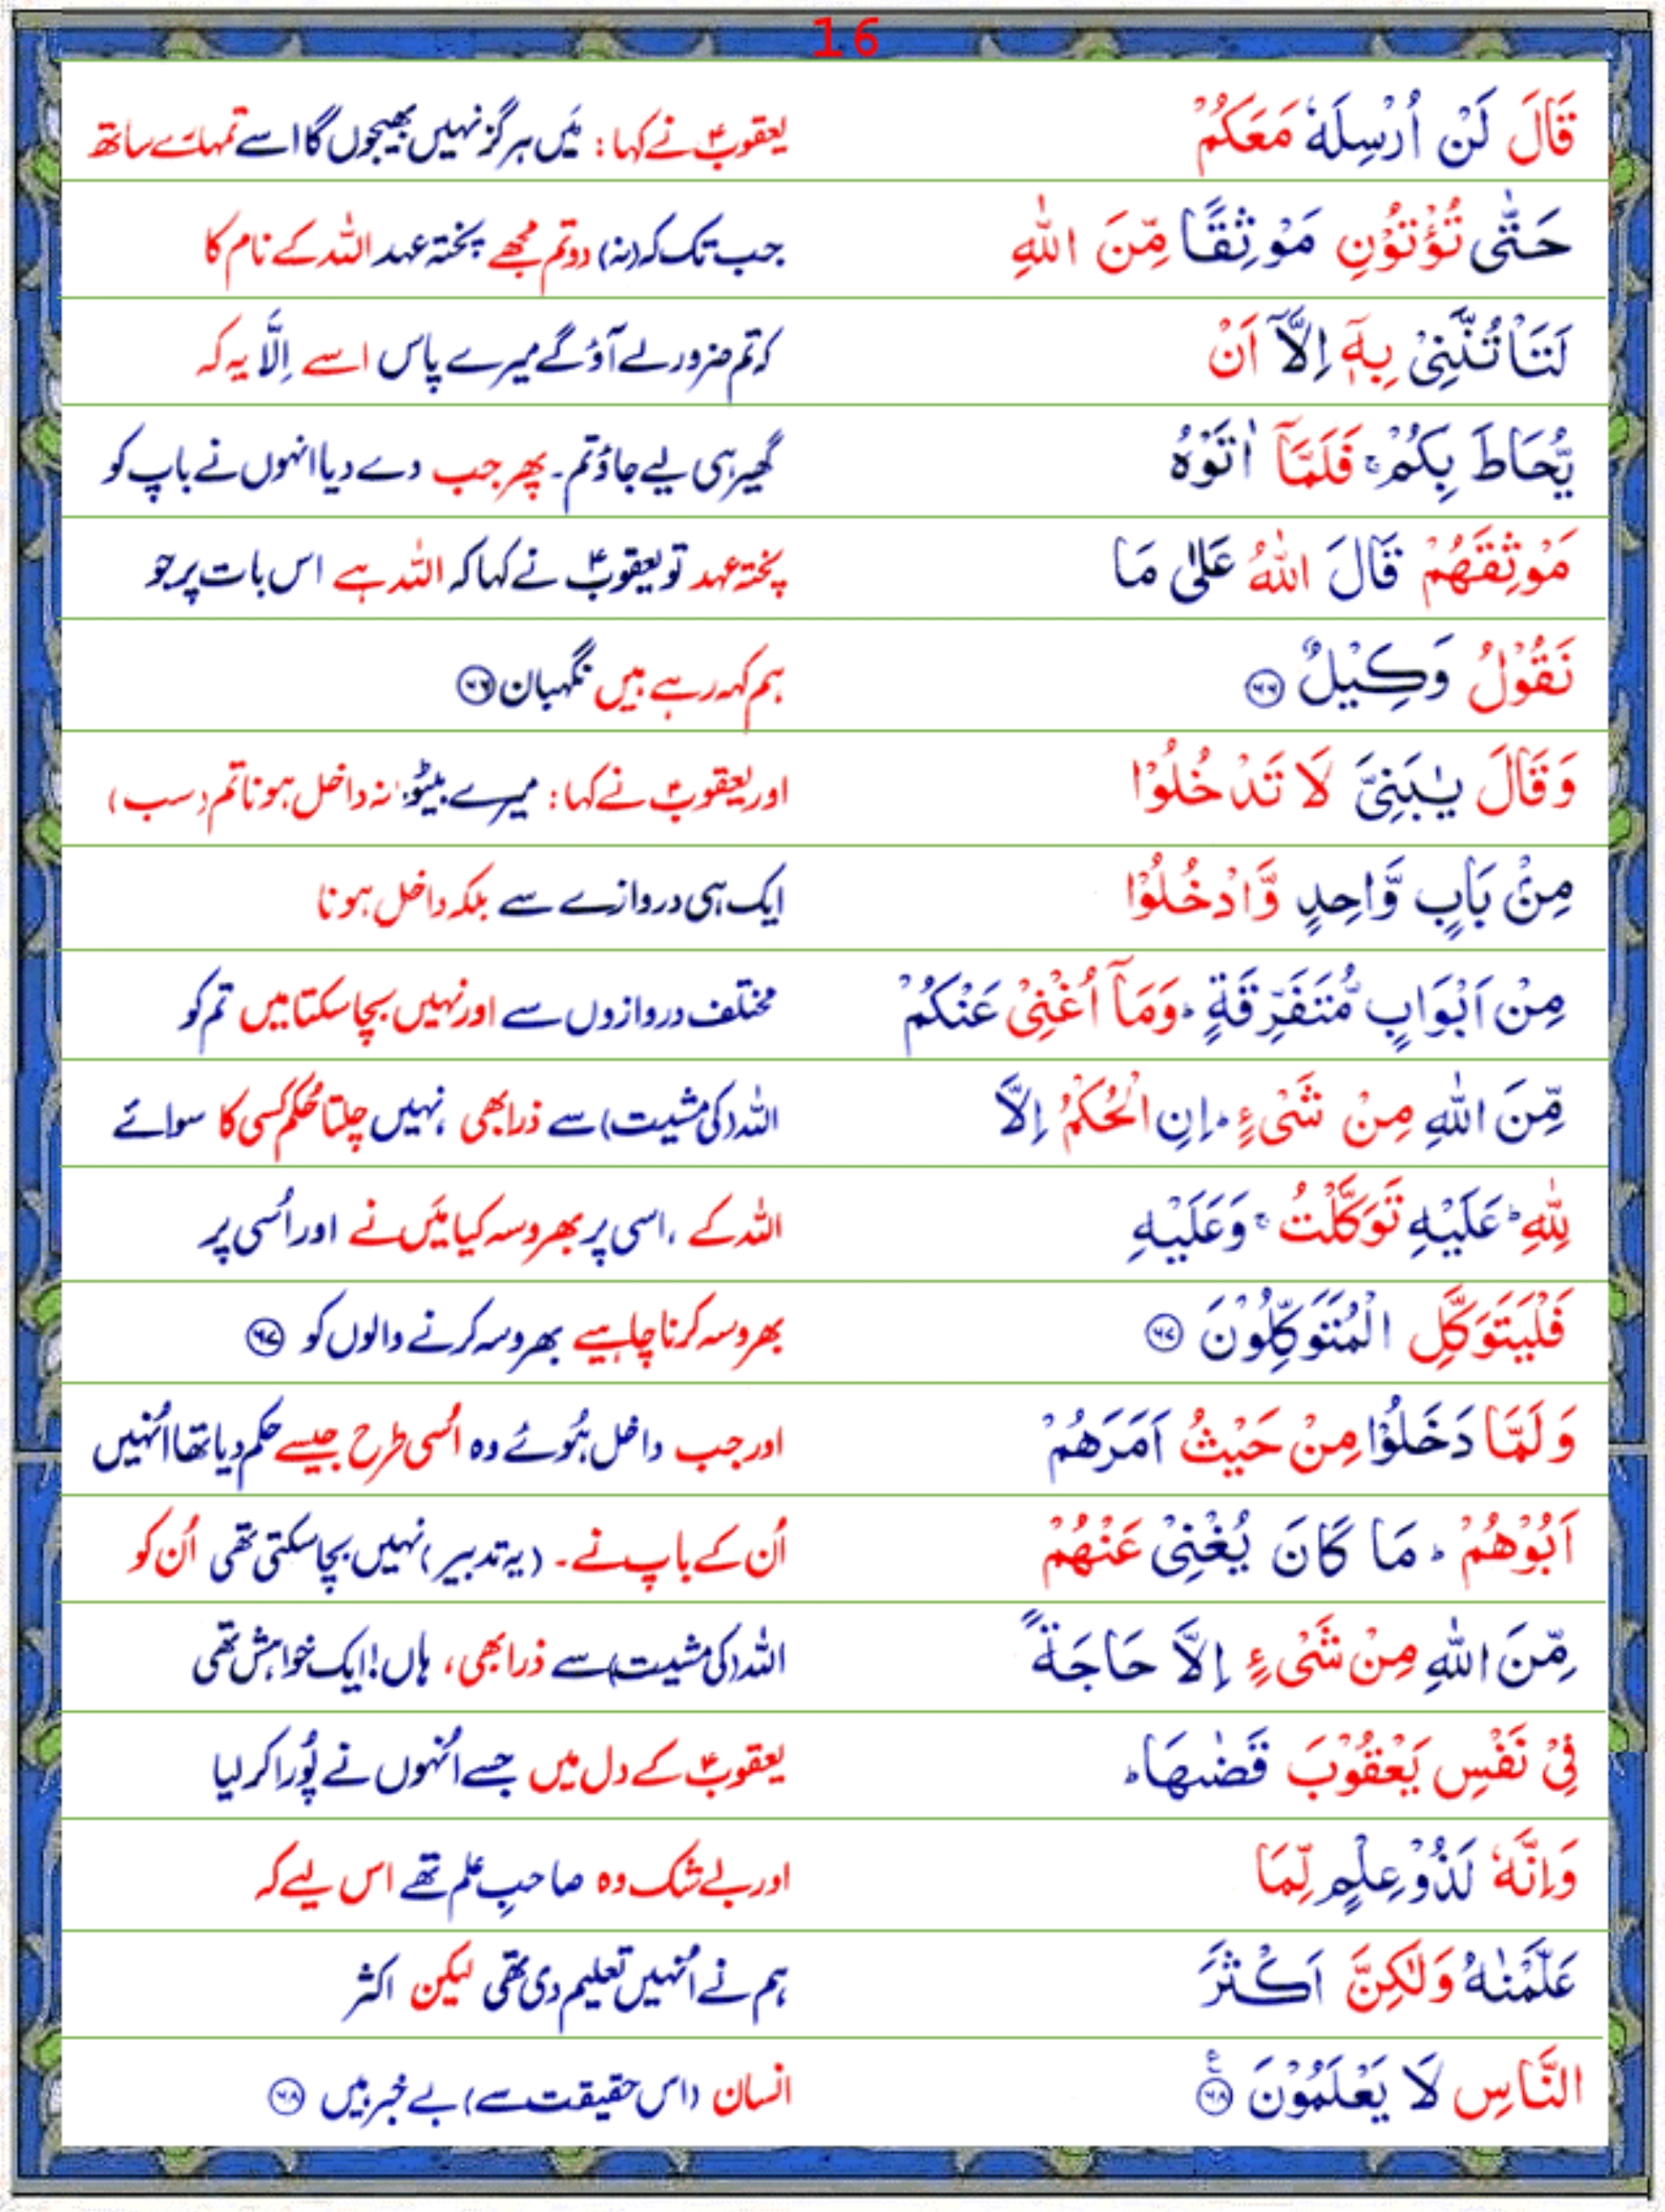 16
قَالَ لَنْ اُرْسِلَهٗ مَعَكُمْ
یعقوبؑ نے کہا: مَیں ہرگز نہیں بھیجوں گا اسے تمہارے ساتھ
حَتّٰى تُؤْتُوْنِ مَوْثِقًا مِّنَ اللّٰهِ
جب تک کہ (نہ) دو تم مجھے پختہ عہد اللہ کے نام کا
لَتَاْتُنَّنِيْ بِهٖٓ اِلَّآ اَنْ
کہ تم ضرور لے آؤ گے میرے پاس اسے اِلَّا یہ کہ
يُّحَاطَ بِكُمْ ۚ فَلَمَّآ اٰتَوْهُ
گھیر ہی لیے جاؤ تم۔ پھر جب دے دیا انہوں نے باپ کو
مَوْثِقَهُمْ قَالَ اللّٰهُ عَلٰى مَا
پختہ عہد تو یعقوبؑ نے کہا کہ اللہ ہے اس بات پر جو
نَقُوْلُ وَكِيْلٌ ۝۶۶
ہم کہہ رہے ہیں نگہبان ۝۶۶
وَقَالَ يٰبَنِيَّ لَا تَدْخُلُوْا
اور یعقوبؑ نے کہا: میرے بیٹو! نہ داخل ہونا تم (سب)
مِنْۢ بَابٍ وَّاحِدٍ وَّادْخُلُوْا
ایک ہی دروازے سے بلکہ داخل ہونا
مِنْ اَبْوَابٍ مُّتَفَرِّقَةٍ ؕ وَمَآ اُغْنِيْ عَنْكُمْ
مختلف دروازوں سے اور نہیں بچا سکتا میں تم کو
مِّنَ اللّٰهِ مِنْ شَيْءٍ ؕ اِنِ الْحُكْمُ اِلَّا
اللہ (کی مشیت) سے ذرا بھی، نہیں چلتا حُکم کسی کا سوائے
لِلّٰهِ ؕ عَلَيْهِ تَوَكَّلْتُ ۚ وَعَلَيْهِ
اللہ کے، اسی پر بھروسہ کیا مَیں نے اور اُسی پر
فَلْيَتَوَكَّلِ الْمُتَوَكِّلُوْنَ ۝۶۷
بھروسہ کرنا چاہیے بھروسہ کرنے والوں کو ۝۶۷
وَلَمَّا دَخَلُوْا مِنْ حَيْثُ اَمَرَهُمْ
اور جب داخل ہُوئے وہ اُسی طرح جیسے حکم دیا تھا اُنہیں
اَبُوْهُمْ ؕ مَا كَانَ يُغْنِيْ عَنْهُمْ
اُن کے باپ نے۔ (یہ تدبیر) نہیں بچا سکتی تھی اُن کو
مِّنَ اللّٰهِ مِنْ شَيْءٍ اِلَّا حَاجَةً
اللہ (کی مشیت) سے ذرا بھی، ہاں! ایک خواہش تھی
فِيْ نَفْسِ يَعْقُوْبَ قَضٰىهَا ؕ
یعقوبؑ کے دل میں جسے اُنہوں نے پُورا کر لیا
وَاِنَّهٗ لَذُوْ عِلْمٍ لِّمَا
اور بے شک وہ صاحبِ علم تھے اس لیے کہ
عَلَّمْنٰهُ وَلٰكِنَّ اَكْثَرَ
ہم نے اُنہیں تعلیم دی تھی لیکن اکثر
النَّاسِ لَا يَعْلَمُوْنَ ۝۶۸ ع
انسان (اس حقیقت سے) بے خبر ہیں ۝۶۸